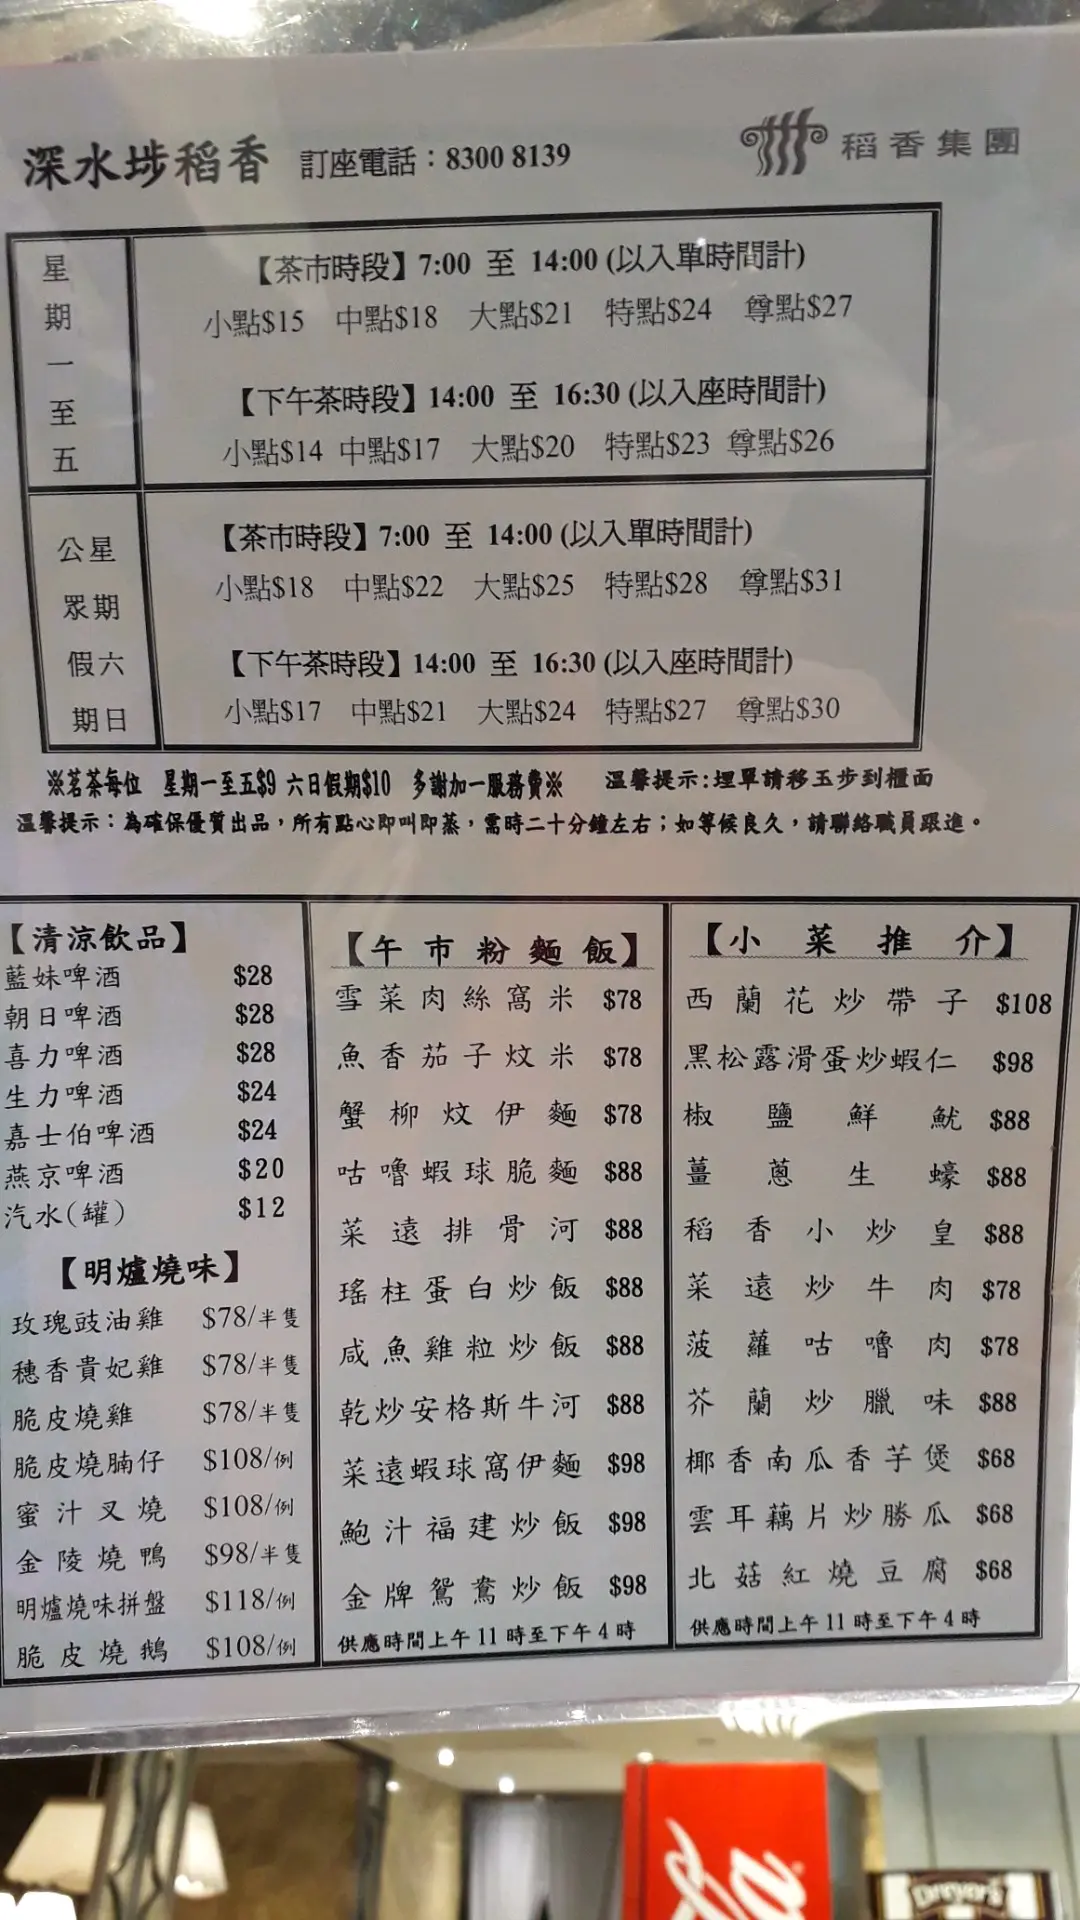 深水埗稻香 訂座電話：8300 8139
稻香集團
星期一至五
【茶市時段】7:00 至 14:00 (以入單時間計)
小點$15 中點$18 大點$21 特點$24 尊點$27
【下午茶時段】14:00 至 16:30 (以入座時間計)
小點$14 中點$17 大點$20 特點$23 尊點$26
公眾假期
星期六日
【茶市時段】7:00 至 14:00 (以入單時間計)
小點$18 中點$22 大點$25 特點$28 尊點$31
【下午茶時段】14:00 至 16:30 (以入座時間計)
小點$17 中點$21 大點$24 特點$27 尊點$30
※茗茶每位 星期一至五$9 六日假期$10 多謝加一服務費※ 溫馨提示:埋單請移玉步到櫃面
溫馨提示：為確保優質出品，所有點心即叫即蒸，需時二十分鐘左右；如等候良久，請聯絡職員跟進。
【清涼飲品】
藍妹啤酒 $28
朝日啤酒 $28
喜力啤酒 $28
生力啤酒 $24
嘉士伯啤酒 $24
燕京啤酒 $20
汽水(罐) $12
【明爐燒味】
玫瑰豉油雞 $78/半隻
穗香貴妃雞 $78/半隻
脆皮燒雞 $78/半隻
脆皮燒腩仔 $108/例
蜜汁叉燒 $108/例
金陵燒鴨 $98/半隻
明爐燒味拼盤 $118/例
脆皮燒鵝 $108/例
【午市粉麵飯】
雪菜肉絲窩米 $78
魚香茄子炆米 $78
蟹柳炆伊麵 $78
咕嚕蝦球脆麵 $88
菜遠排骨河 $88
瑤柱蛋白炒飯 $88
咸魚雞粒炒飯 $88
乾炒安格斯牛河 $88
菜遠蝦球窩伊麵 $98
鮑汁福建炒飯 $98
金牌鴛鴦炒飯 $98
供應時間上午 11 時至下午 4 時
【小菜推介】
西蘭花炒帶子 $108
黑松露滑蛋炒蝦仁 $98
椒鹽鮮魷 $88
薑蔥生蠔 $88
稻香小炒皇 $88
菜遠炒牛肉 $78
菠蘿咕嚕肉 $78
芥蘭炒臘味 $88
椰香南瓜香芋煲 $68
雲耳藕片炒勝瓜 $68
北菇紅燒豆腐 $68
供應時間上午 11 時至下午 4 時
Dreyer's